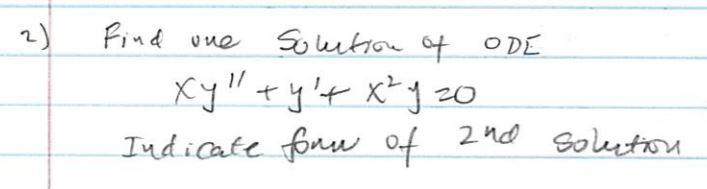 2) Find one Solution of ODE
xy'' + y' + x² y = 0
Indicate form of 2nd solution